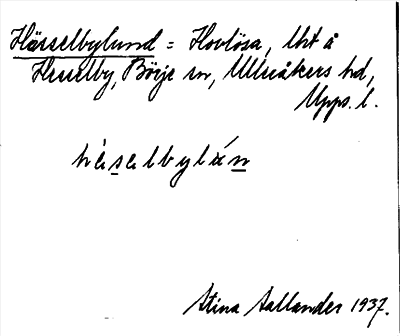 Hässelbylund = Hovlösa, lht å
Hesselby, Börje sn, Ulleråkers hd,
Upps. l.
hèsəlbylá̀n
Stina Sallander 1937.